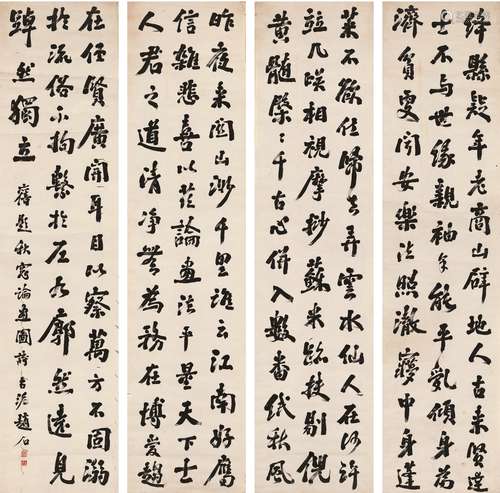 絳縣疑年老商山辟地人古來賢達
士不与世緣親袖手能平亂傾身為
濟貧更聞安樂法照澈夢中身蓬
萊不欲任歸去弄雲水仙人在何許
並几咲相視摩挲蘇米跡扶剔倪
黄髓槩千古心併入數番紙秋風
昨夜来關山渺千里誰云江南好腐
信雜悲喜以茲論畫法平量天下士
人君之道清净無為務在博愛趨
在任賢廣開耳目以察萬方不固溺
於流俗不拘繫於左右廓然遠見
踔然獨立
舊題秋窓論畫圖詩古泥趙石